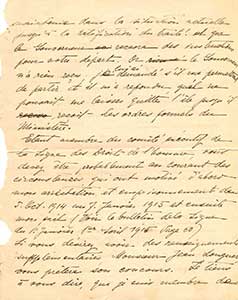 maintenue dans la situation actuelle
jusqu'à la ratification du traité et que
le Gouverneur recevra des instructions
pour notre départ. Or le Gouverneur
n'a rien reçu; j'ai demandé s'il me permettrait
de partir et il m'a répondu que ne
pouvait me laisser quitter l'île jusqu'à
reçoit des ordres formels du
Ministère.
Étant membre du comité exécutif de
la Ligue des Droits de l'homme vous
avez été probablement au courant des
circonstances qui ont motivé d'abord
mon arrestation et emprisonnement du
5. Oct. 1914 au 7. Janvier 1915 et ensuite
mon exil (Voir le bulletin de la Ligue
du 1. Janvier (1er Août 1915 Page 50)
Si vous désirez avoir des renseignements
supplémentaires Monsieur Jean Longuet
vous prêtera son concours. Je tiens
à vous dire, que je suis membre de